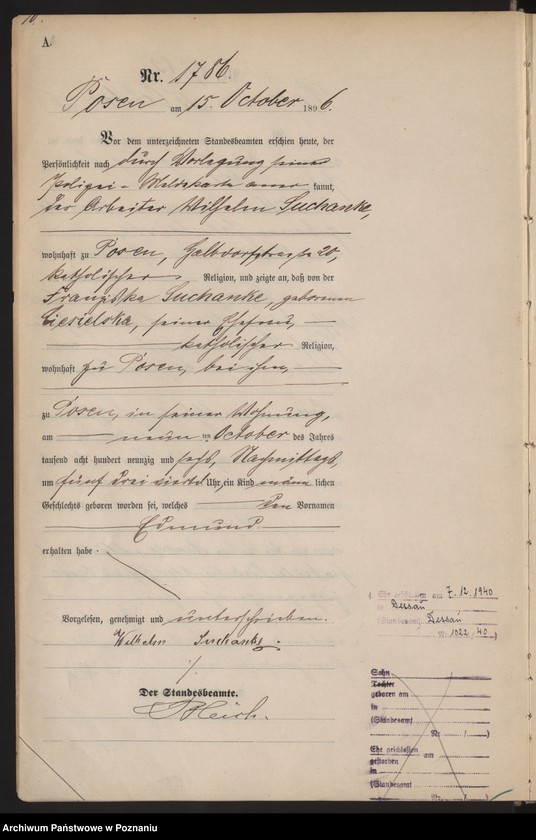 A.
Nr. 1786.
Posen am 15. October 1896.
Vor dem unterzeichneten Standesbeamten erschien heute, der
Persönlichkeit nach durch Vorlegung seiner
Polizei-Meldekarte kannt,
der Arbeiter Wilhelm Suchanke,
wohnhaft zu Posen, 20,
katholischer Religion, und zeigte an, daß von der
Franziska Suchanke, geborenen
Ciesielska, seiner Ehefrau,
katholischer Religion,
wohnhaft zu Posen, bei ihm,
zu Posen, in seiner Wohnung,
am neun ten October des Jahres
tausend acht hundert neunzig und sechs, Nachmittags
um fünf drei viertel Uhr, ein Kind männ lichen
Geschlechts geboren worden sei, welches den Vornamen
Edmund
erhalten habe.
Vorgelesen, genehmigt und unterschrieben.
Wilhelm Suchanke.
Der Standesbeamte.
1. Ehe geschlossen am 7.12.1940
in Dessau
(Standesamt Dessau
Nr. 1022/40)
Sohn
Tochter
geboren am
in
(Standesamt
Nr /)
Ehe geschlossen am
gestorben
in
(Standesamt
Nr /)
Archiwum Państwowe w Poznaniu